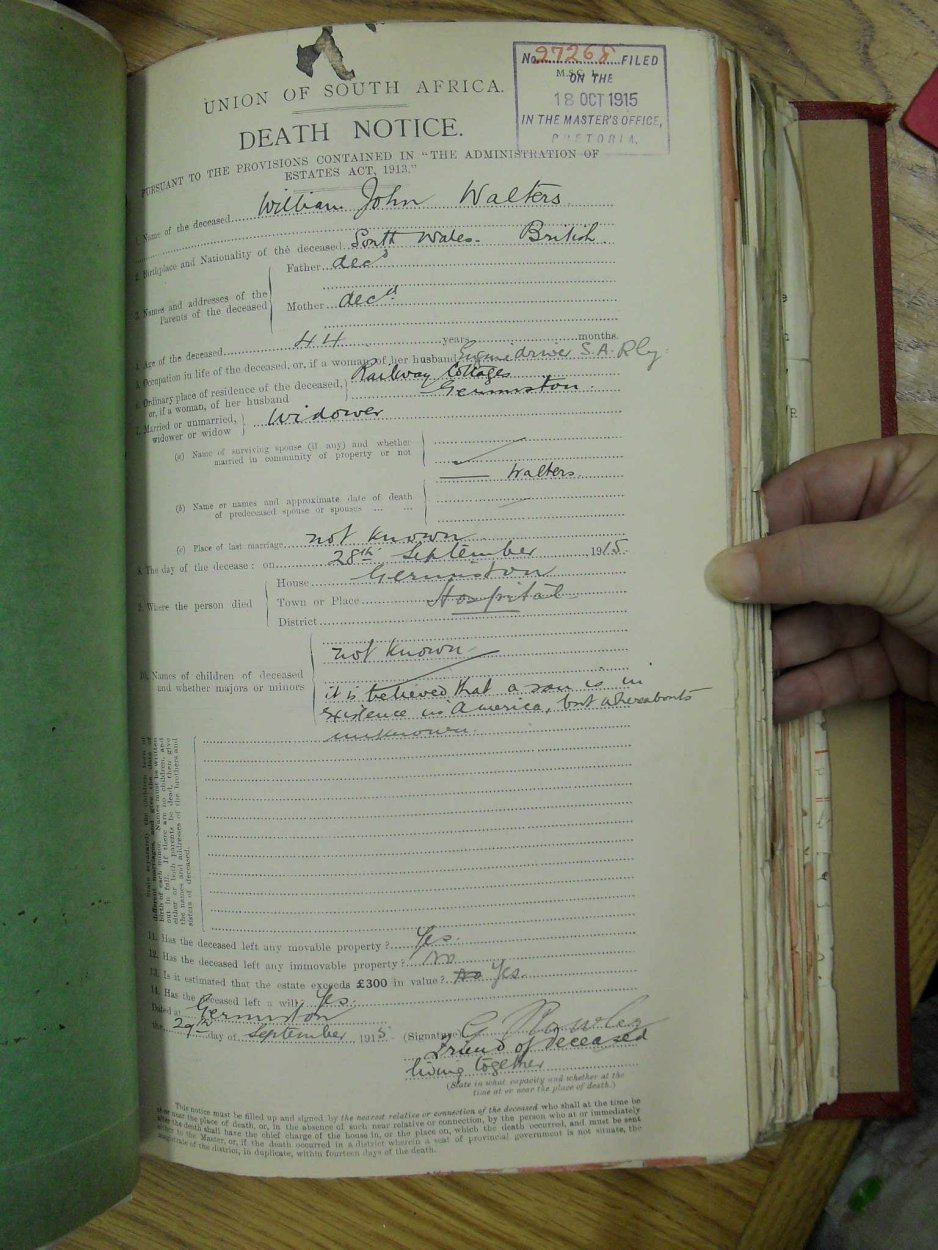 No. 27268 FILED
M.S.C.
ON THE
18 OCT 1915
IN THE MASTER'S OFFICE,
PRETORIA,
UNION OF SOUTH AFRICA.
DEATH NOTICE.
PURSUANT TO THE PROVISIONS CONTAINED IN "THE ADMINISTRATION OF
ESTATES ACT, 1913."
1. Name of the deceased William John Walters
2. Birthplace and Nationality of the deceased South Wales. British
3. Names and addresses of the Parents of the deceased
Father decd
Mother decd
4. Age of the deceased 44 years months.
5. Occupation in life of the deceased, or, if a woman, of her husband Engine driver S.A. Rly
6. Ordinary place of residence of the deceased, or, if a woman, of her husband
Railway Cottages
Germiston.
7. Married or unmarried, widower or widow
Widower
(a) Name of surviving spouse (if any) and whether
married in community of property or not
Walters
(b) Name or names and approximate date of death
of predeceased spouse or spouses ... ...
(c) Place of last marriage not known
8. The day of the decease: on 28th September 1915.
9. Where the person died
House Germiston
Town or Place Hospital
District
10. Names of children of deceased
and whether majors or minors
not known
it is believed that a son is in
existence in America, but whereabouts
unknown.
different marriages and give the date of
birth of each minor. Names must be written
out in full. If there are no children, and
either or both parents be dead, then give
the names and addresses of the brothers and
sisters of deceased.
11. Has the deceased left any movable property? Yes.
12. Has the deceased left any immovable property? No
13. Is it estimated that the estate exceeds £300 in value? No Yes.
14. Has the deceased left a will? Yes.
Dated at Germiston
the 29th day of September 1915
(Signature) G
Friend of deceased
living together
(State in what capacity and whether at the
time at or near the place of death.)
This notice must be filled up and signed by the nearest relative or connection of the deceased who shall at the time be
at or near the place of death, or, in the absence of such near relative or connection, by the person who at or immediately
after the death shall have the chief charge of the house in, or the place on, which the death occurred, and must be sent
either to the Master, or, if the death occurred in a district wherein a seat of provincial government is not situate, the
magistrate of the district, in duplicate, within fourteen days of the death.